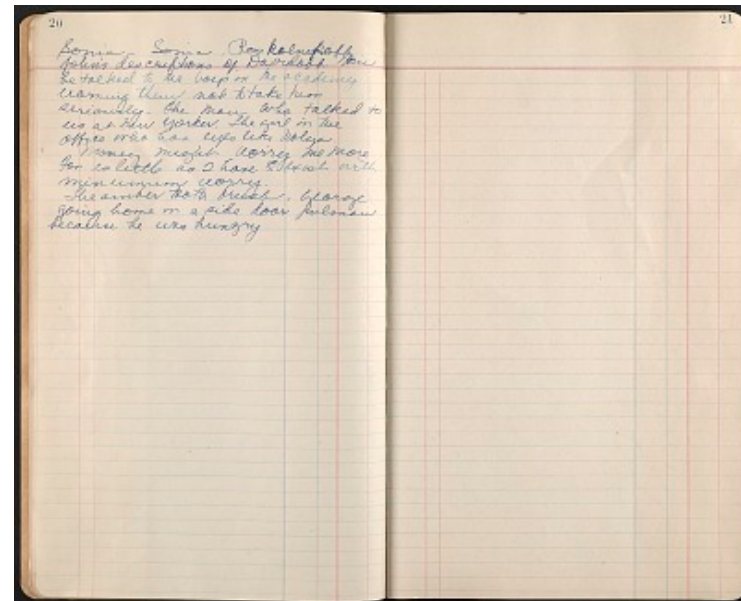 20
21
Sonia. Sonia.
John's descriptions of Davidson. How
he talked to the boys in the academy
warning them not to take him
seriously. The man who talked to
us as New Yorker. The girl in the
office who has eyes like
Money might worry me more
for as little as I have with
minimum worry.
The amber tooth brush. George
going home in a side door pulman
because he was hungry